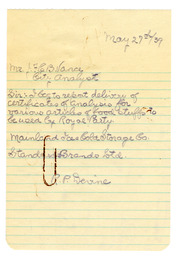 May 27th/39
Mr. J.F.C.B. Vance
City Analyst
Sir:- to report delivery of
certificates of analysis for
various articles of food stuffs to
be used by Royal Party
Mainland Ice Cold Storage Co.
Standard Brands Ltd.
P Devine